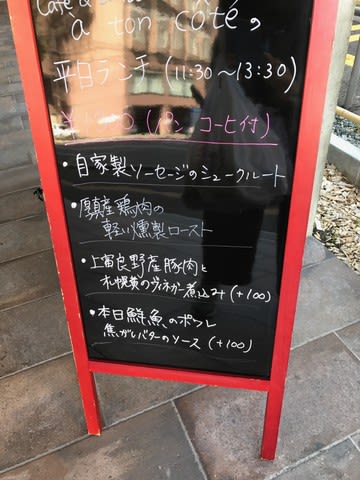 Café &
à ton côté の
平日ランチ (11:30～13:30)
(パン コーヒー付)
・自家製ソーセージのシュークルート
・厚真産鶏肉の
軽い燻製ロースト
・上富良野産豚肉と
札幌黄のヴィネガー煮込み (+100)
・本日鮮魚のポワレ
焦がしバターのソース (+100)